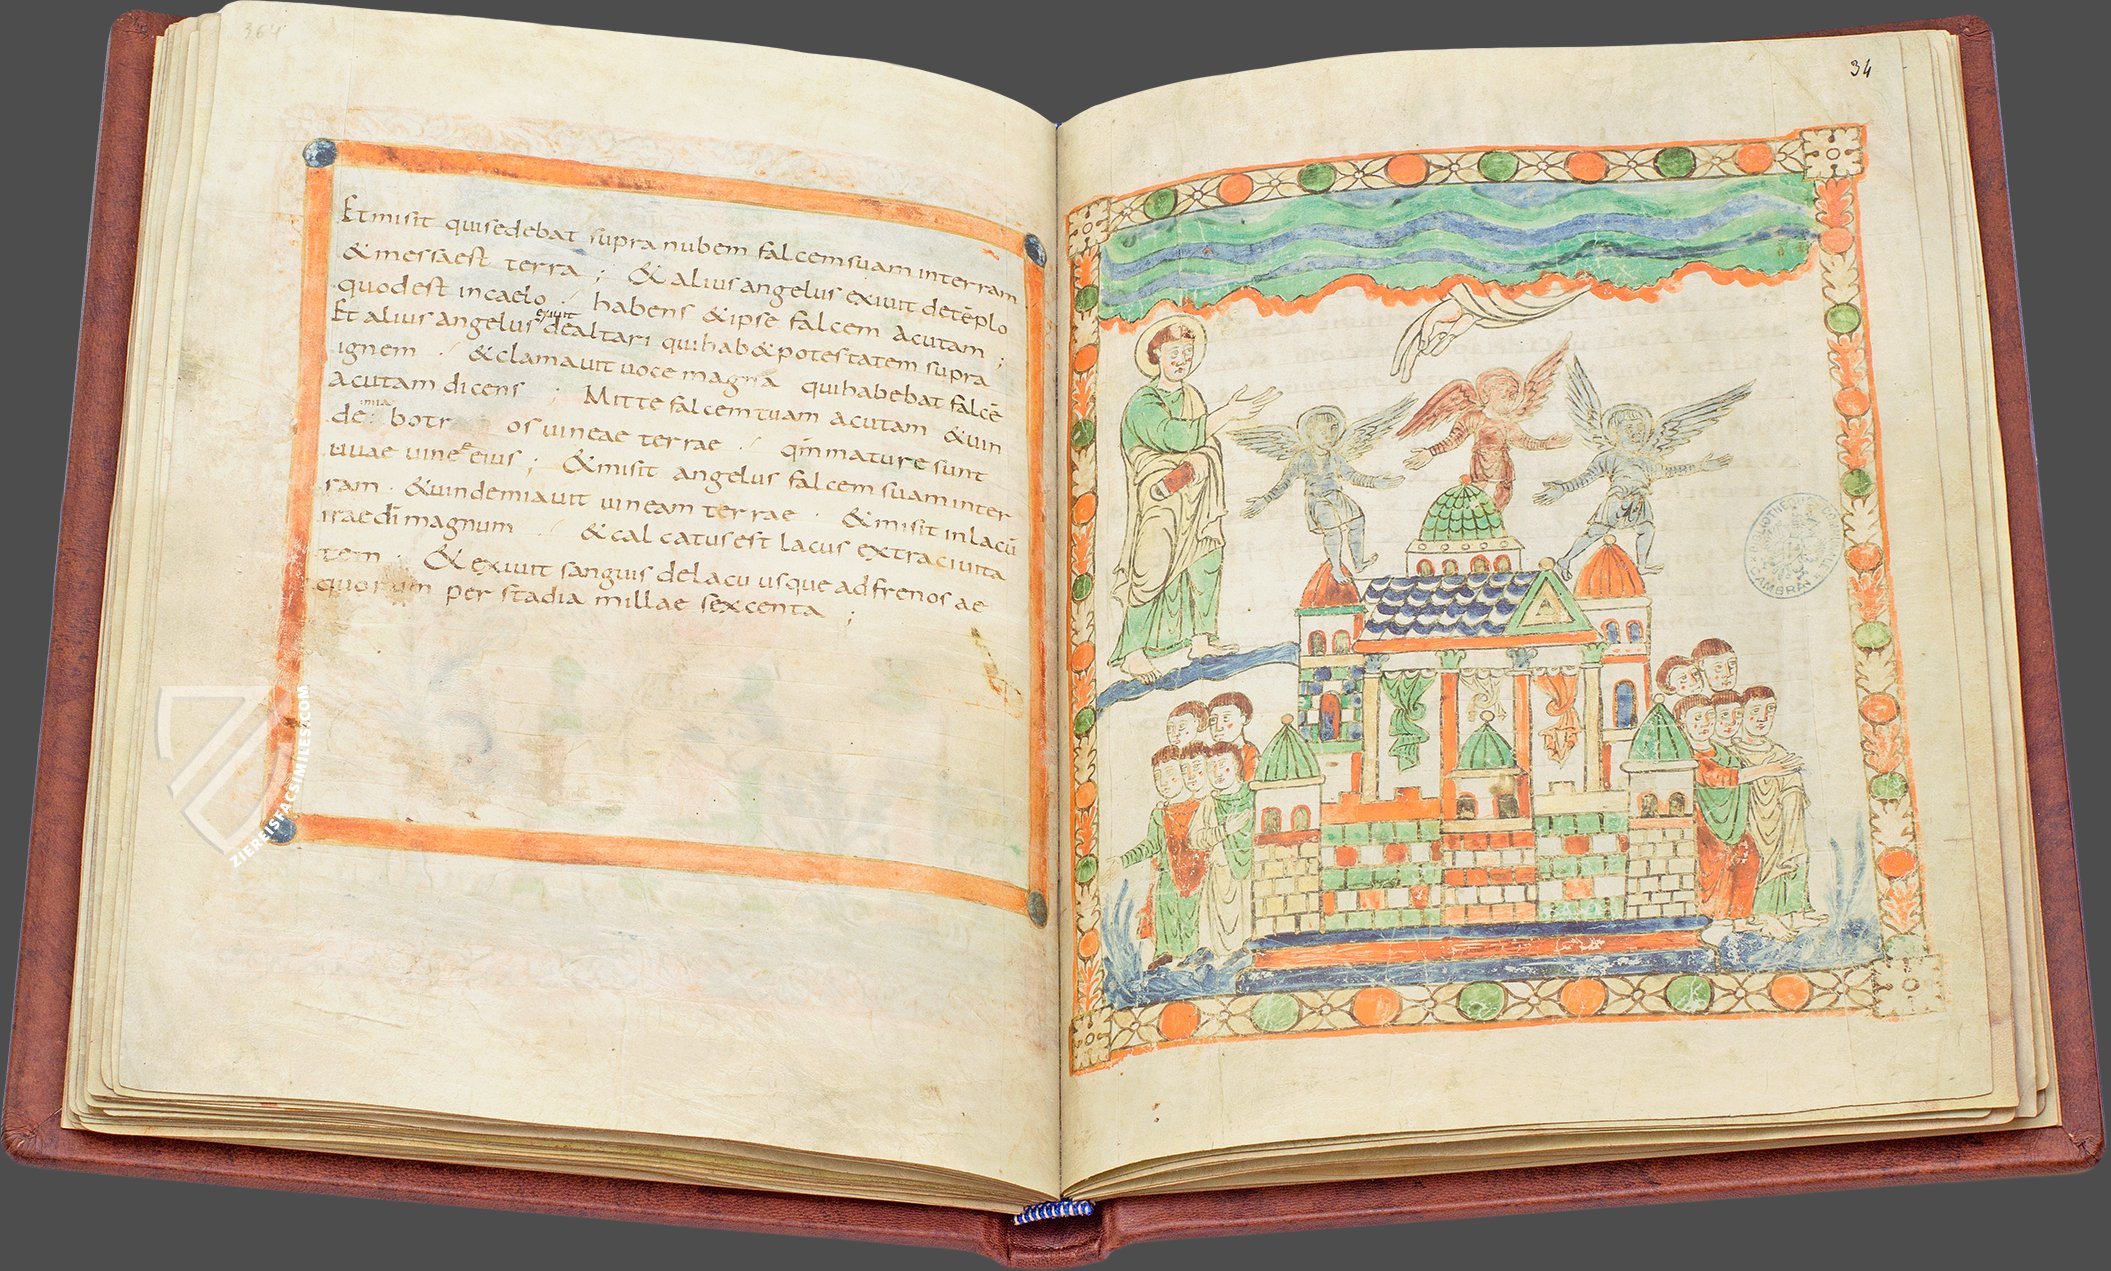 364
Et misit qui sedebat supra nubem falcem suam interram
& messa est terra ; & alius angelus exiuit detēplo
quod est in caelo · habens & ipse falcem acutam ;
Et alius angelus exiuit de altari qui hab& potestatem supra
ignem · & clamauit uoce magna qui habebat falcē
acutam dicens ; Mitte falcem tuam acutam & uin
de mia botr os uineae terrae · qm̄ mature sunt
uuae uineę eius ; & misit angelus falcem suam inter
ram · & uindemiauit uineam terrae · & misit in lacū
irae dī magnum · & calcatus est lacus extra ciuita
tem · & exiuit sanguis de lacu usque ad frenos ae
quorum per stadia millae sexcenta ;
ZIEREIS FACSIMILES.COM
34
BIBLIOTHEQUE COMMUNALE CAMBRAI